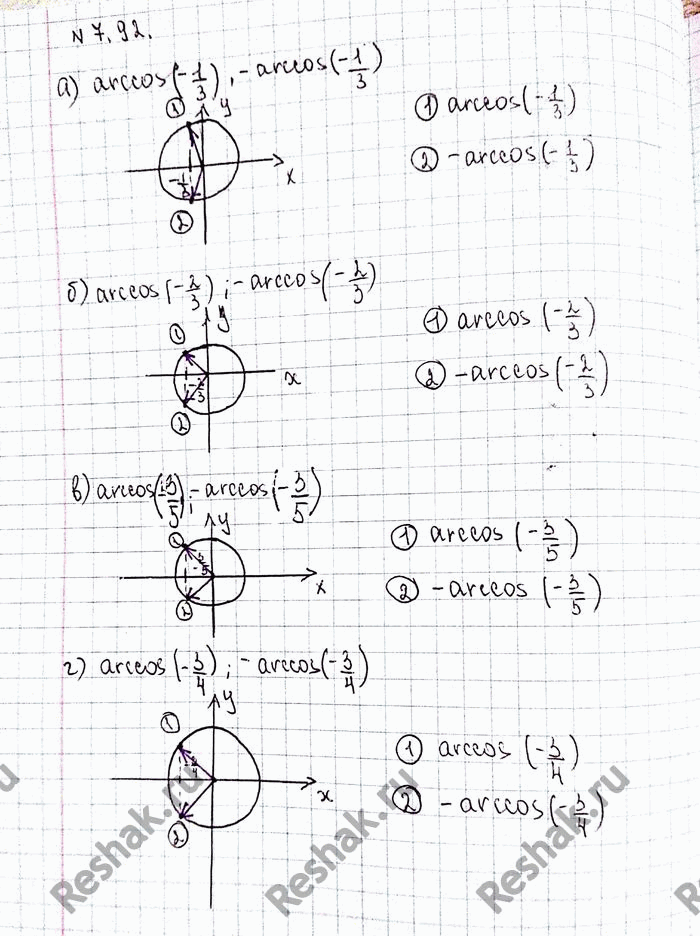 N 7.92.
а) arccos(-1/3), -arccos(-1/3)
① y
x
-1/3
②
① arccos(-1/3)
② -arccos(-1/3)
б) arccos(-2/3); -arccos(-2/3)
① y
x
-2/3
②
① arccos(-2/3)
② -arccos(-2/3)
в) arccos(-3/5); -arccos(-3/5)
① y
-3/5
x
②
① arccos(-3/5)
② -arccos(-3/5)
г) arccos(-3/4); -arccos(-3/4)
① y
-3/4
x
②
① arccos(-3/4)
② -arccos(-3/4)
Reshak.ru
Reshak.ru
Reshak.ru